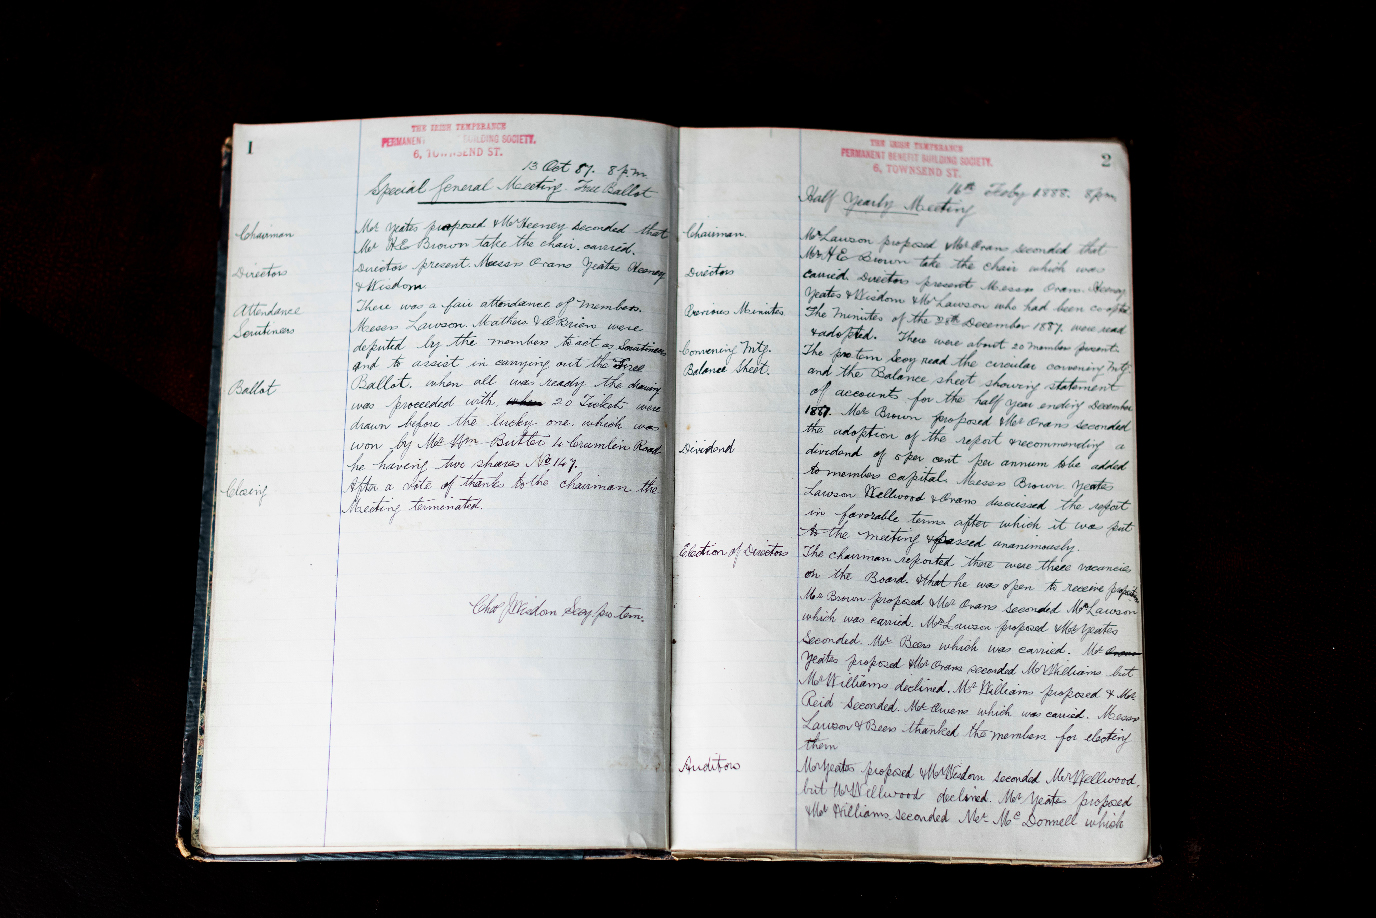 1
THE IRISH TEMPERANCE
PERMANENT BUILDING SOCIETY.
6, TOWNSEND ST.
13 Oct 87. 8 p.m.
Special General Meeting Free Ballot
Chairman
Mr Yeates proposed & Mr Heeney seconded that
Mr H.E Brown take the chair. carried.
Directors
Directors present Messrs Orans Yeates Heeney
& Wisdom
Attendance
There was a fair attendance of members.
Scrutineers
Messrs Lawson Mathers & OBrien were
deputed by the members to act as Scrutineers
and to assist in carrying out the Free
Ballot
Ballot. when all was ready the drawing
was proceeded with 20 Tickets were
drawn before the lucky one which was
won by Mr Wm Butler 4 Crumlin Road
he having two shares No 147.
Closing
After a vote of thanks to the chairman the
Meeting terminated.
Chas J Wisdom Secy pro tem.
2
THE IRISH TEMPERANCE
PERMANENT BENEFIT BUILDING SOCIETY.
6, TOWNSEND ST.
16th Feby 1888. 8pm
Half Yearly Meeting
Chairman
Mr Lawson proposed & Mr Orans seconded that
Mr H E Brown take the chair which was
Directors
carried. Directors present Messrs Orans Heeney
Yeates & Wisdom & Mr Lawson who had been co-opted
Previous Minutes
The Minutes of the 28th December 1887. were read
& adopted. There were about 20 members present.
Convening Mtg.
The pro tem Secy read the circular convening Mtg.
Balance Sheet.
and the Balance sheet showing statement
of accounts for the half year ending December
1887. Mr Brown proposed & Mr Orans seconded
the adoption of the report & recommending a
Dividend
dividend of 5 per cent per annum to be added
to members capital. Messrs Brown Yeates
Lawson Wellwood & Orans discussed the report
in favorable terms after which it was put
to the meeting & passed unanimously.
Election of Directors
The chairman reported there were three vacancies
on the Board. & that he was open to receive
Mr Brown proposed & Mr Orans seconded Mr Lawson
which was carried. Mr Lawson proposed & Mr Yeates
Seconded. Mr Beers which was carried. Mr
Yeates proposed & Mr Orans seconded Mr Williams but
Mr Williams declined. Mr Williams proposed & Mr
Reid seconded. Mr Owens which was carried. Messrs
Lawson & Beers thanked the members for electing
them
Auditors
Mr Yeates proposed & Mr Wisdom seconded Mr Wellwood,
but Mr Wellwood declined. Mr Yeates proposed
& Mr Williams seconded Mr McDonnell which